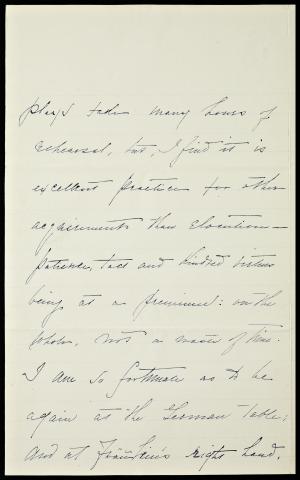 plays take many hours of
rehearsal, but, I find it is
excellent practice for other
acquirements than elocution—
patience, tact and kindred virtues
being at a premium: on the
whole, not a waste of time.
I am so fortunate as to be
again at the German table;
and at Fräulein's right hand.